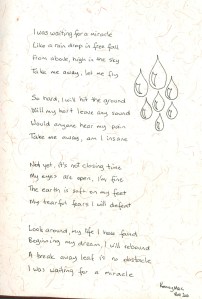 I was waiting for a miracle
Like a rain drop in free fall
From above, high in the sky
Take me away, let me fly
So hard, I will hit the ground
Will my hurt leave any sound
Would anyone hear my pain
Take me away, am I insane
Not yet, it's not closing time
My eyes are open, I'm fine
The earth is soft on my feet
My tearful fears I will defeat
Look around, my life I have found
Beginning my dream, I will rebound
A break away leaf is no obstacle
I was waiting for a miracle